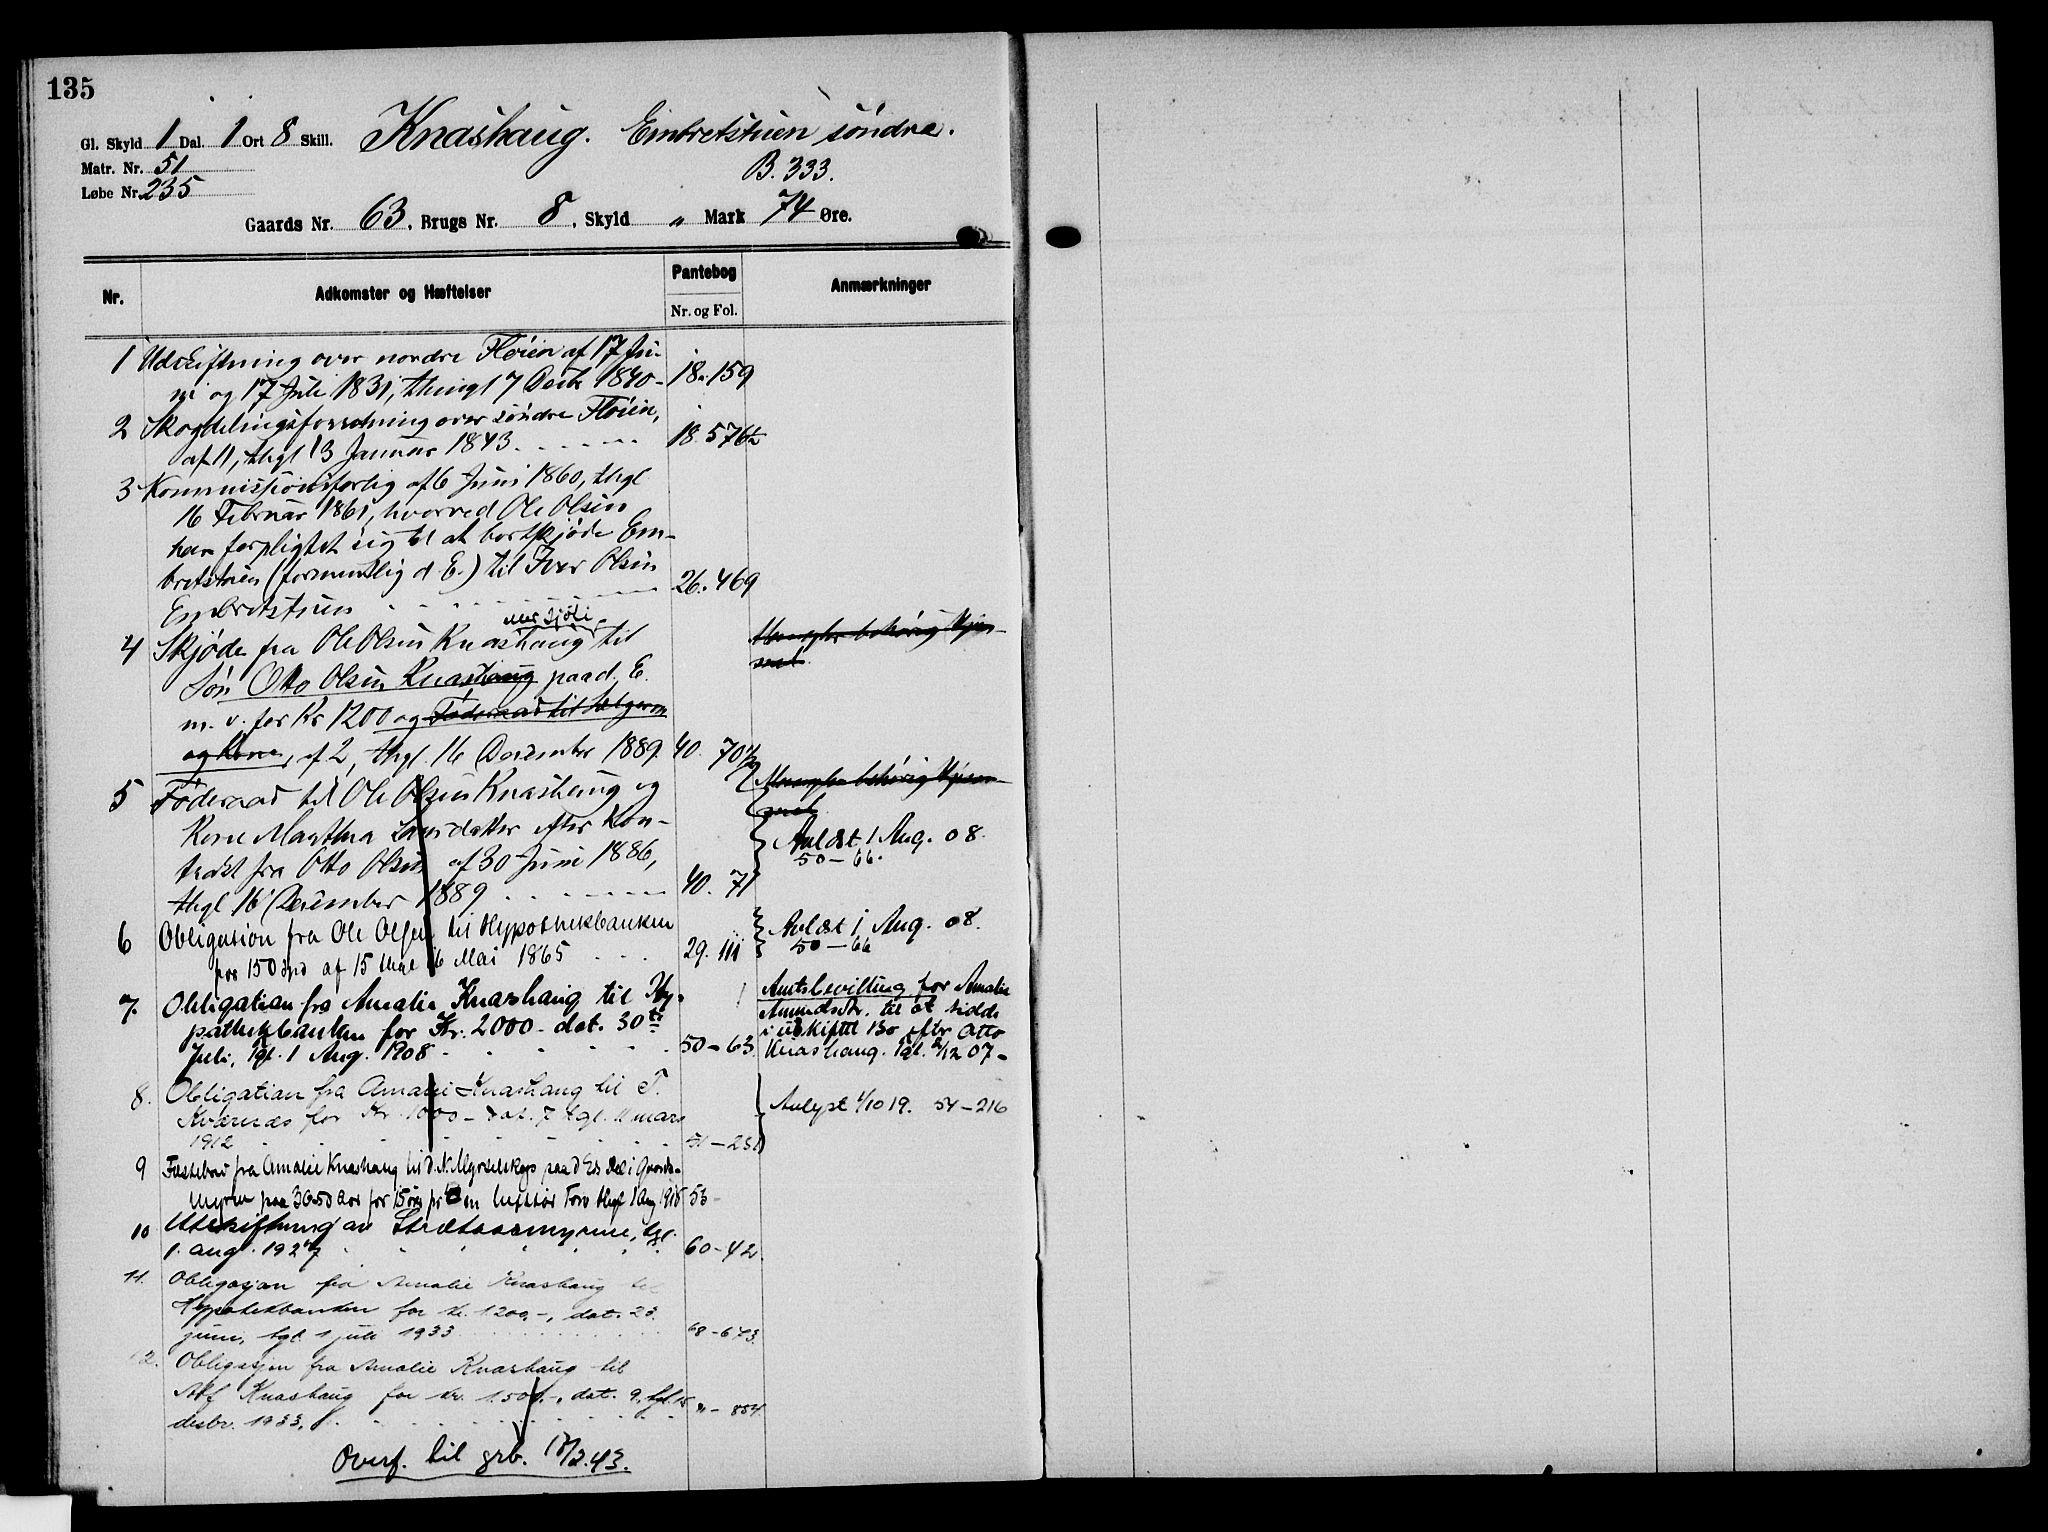 135
Gl. Skyld 1 Dal. 1 Ort 8 Skill. Knashaug. Embretstuen søndre.
Matr. Nr. 51 B. 333.
Løbe Nr. 235
Gaards Nr. 63, Brugs Nr. 8, Skyld " Mark 74 Øre.
Nr. Adkomster og Hæftelser Pantebog Nr. og Fol. Anmærkninger
1 Udskiftning over nordre Fløien af 17 Ju-
ni og 17 Juli 1831, thingl 7 Decbr 1840 - 18. 159
2 Skogdelingsforretning over søndre Fløien,
af 11, thgl 13 Januar 1843. 18. 576
3 Kommissionsforlig af 6 Juni 1860, thgl
16 Februar 1861, hvorved Ole Olsen
har forpligtet sig til at bortskjøde Em-
bretstuen (formentlig d. E.) til Iver Olsen
Embretstuen 26. 469
4 Skjøde fra Ole Olsen Knashaug til
Søn Otto Olsen Knashaug paa d. E.
m. v. for Kr 1200 og Føderaad til Sælgeren
og Kone, af 2, thgl. 16 December 1889. 40. 70
Mangler behørig Hjem-
mel.
5 Føderaad til Ole Olsen Knashaug og
Kone Marthea Larsdatter efter Kon-
trakt fra Otto Olsen af 30 Juni 1886,
thgl 16 December 1889 40. 71
Mangler behørig Hjem-
mel.
Avlæst 1 Aug. 08.
50 - 66.
6 Obligation fra Ole Olsen til Hypothekbanken
for 150 Spd af 15 thgl 16 Mai 1865 29. 111
Avlæst 1 Aug. 08.
50 - 66
7. Obligation fra Amalie Knashaug til Hy-
pothekbanken for Kr. 2000 - dat. 30te
Juli, tgl. 1 Aug. 1908 50 - 63.
Amtsbevilling for Amalie
Amundsdtr. til at sidde
i uskiftet Bo efter Otto
Knashaug. tgl. 2/12 07 -
8. Obligation fra Amalie Knashaug til T.
Kværnæs for Kr. 1000 - dat. 7 tgl. 11 mars
1912 51 - 231
Avlyst 1/10 19. 54 - 216
9 Fæstebrev fra Amalie Knashaug til d. N. Myrselskap paa d Es Del i
Myren paa 3650 Aar for 15 øre pr en Torv thgl 1 Aug 1915 53 -
10 Utskiftning av Strætaasmyrene, tgl.
1. aug. 1927 60 - 42.
11. Obligasjon fra Amalie Knashaug til
Hypotekbanken for kr. 1200,-, dat. 23.
juni, tgl. 1 juli 1933 68 - 673.
12. Obligasjon fra Amalie Knashaug til
Alf Knashaug for kr. 1.500,-, dat. 9, tgl. 15
desbr. 1933. " - 854.
Overf. til grb. 17/2.43.